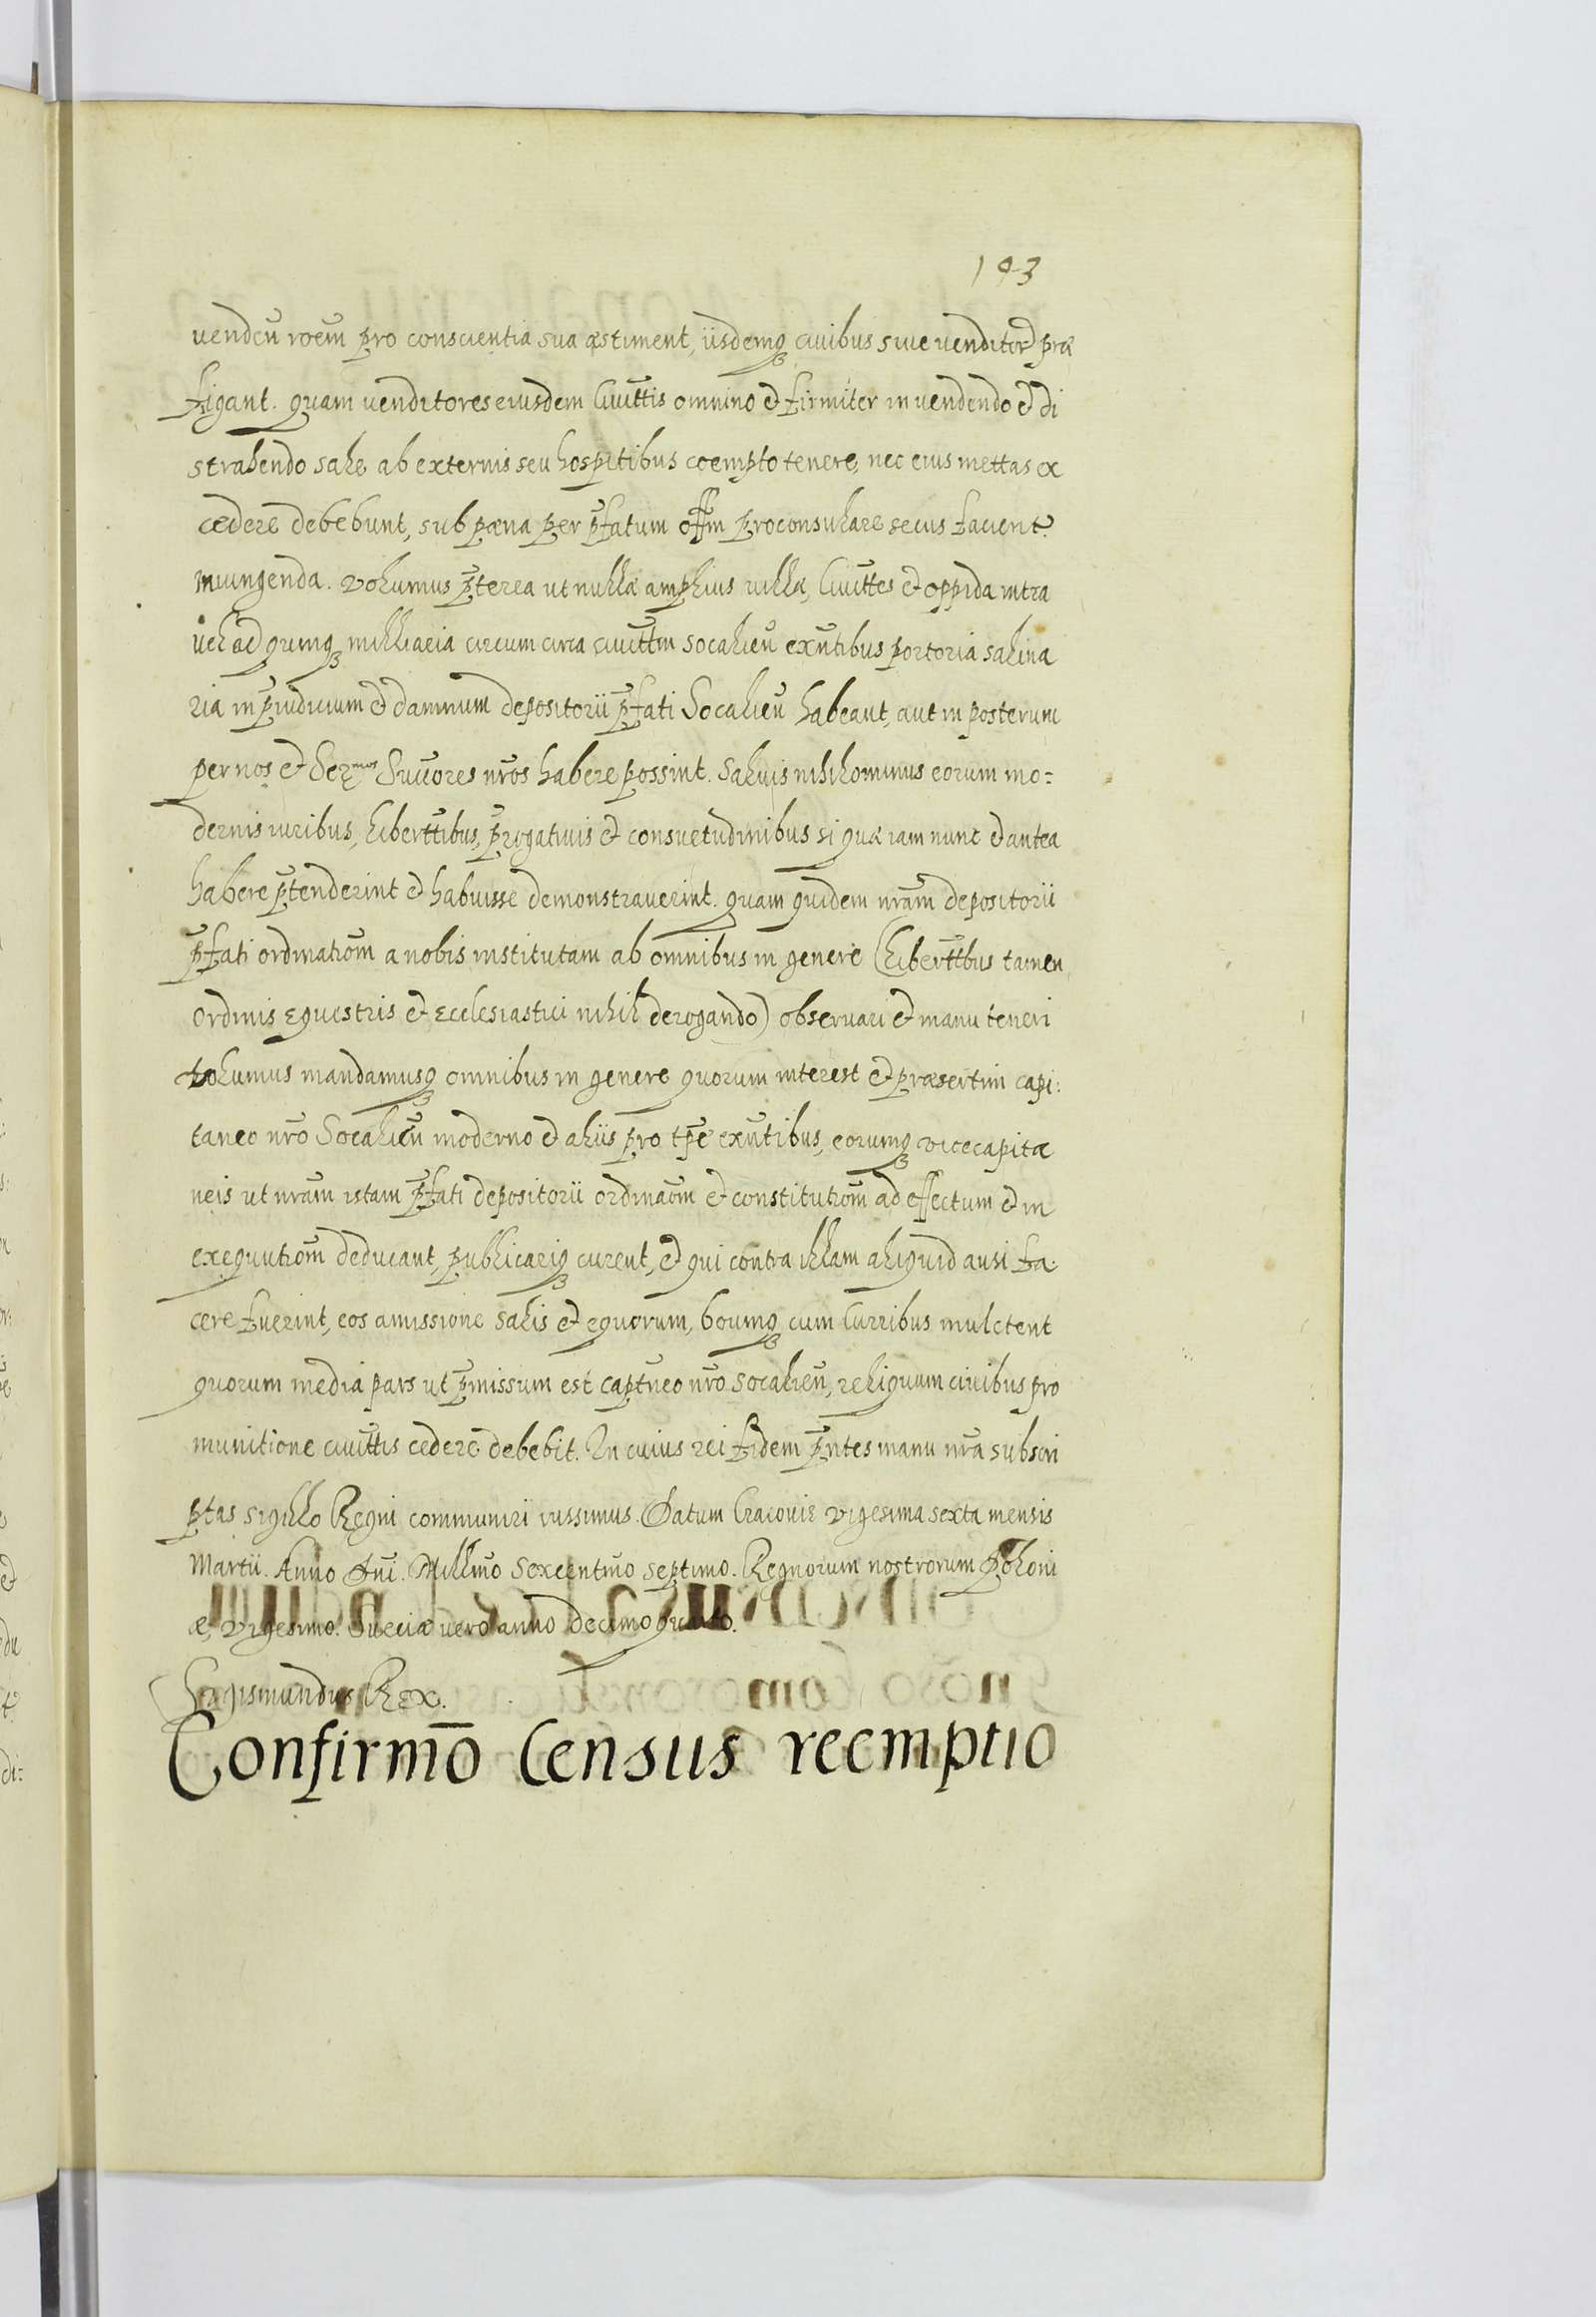 193
venden̄ roēm pro conscientia sua æstiment, iisdemq̃ ciuibus siue venditor prae
figant. quam venditores eiusdem Ciuit̃tis omnino et firmiter in vendendo et di
strahendo sale ab externis seu hospitibus coempto tenere, nec eius mettas ex
cedere debebunt, sub pæna per p̃fatum off̃m proconsulare secus facient
iniungenda. Volumus p̃terea ut nullæ amplius villæ, Ciuit̃tes et oppida intra
vel ad quinq̃ milliaria circum circa ciuit̃tm Socalien̄ exn̄tibus portoria salina
ria in p̃iudicium et damnum depositorii p̃fati Socalien̄ habeant, aut in posterum
per nos et Ser.mos Succores nr̄os habere possint. Saluis nihilominus eorum mo=
dernis iuribus, libertt̃ibus, p̃rogatiuis et consuetudinibus si quæ iam nunc et antea
habere p̃tenderint et habuisse demonstrauerint. quam quidem nr̄am depositorii
p̃fati ordinatiōm a nobis institutam ab omnibus in genere (libertt̃bus tamen
ordinis equestris et ecclesiastici nihil derogando) obseruari et manu teneri
volumus mandamusq̃ omnibus in genere quorum interest et præsertim capi:
taneo nr̄o Socalien̄ moderno et aliis pro tp̄e exn̄tibus, eorumq̃ vicecapita
neis ut nr̄am istam p̃fati depositorii ordinaōm et constitutiōm ad effectum et in
exequutiōm deducant, publicariq̃ curent, et qui contra illam aliquid ausi fa.
cere fuerint, eos amissione salis et equorum, boumq̃ cum curribus mulctent
quorum media pars ut p̃missum est capt̃neo nr̄o Socalien̄, reliquum ciuibus pro
munitione ciuit̃tis cedere debebit. In cuius rei fidem p̃ntes manu nr̄a subscri
ptas sigillo Regni communiri iussimus. Datum Cracouie vigesima sexta mensis
Martii. Anno Dn̄i. Millm̄o Sexcentm̄o septimo. Regnorum nostrorum Poloni
æ, vigesimo. Sueciæ vero anno decimo quarto.
Sigismundus Rex.
Confirmō Census reemptio